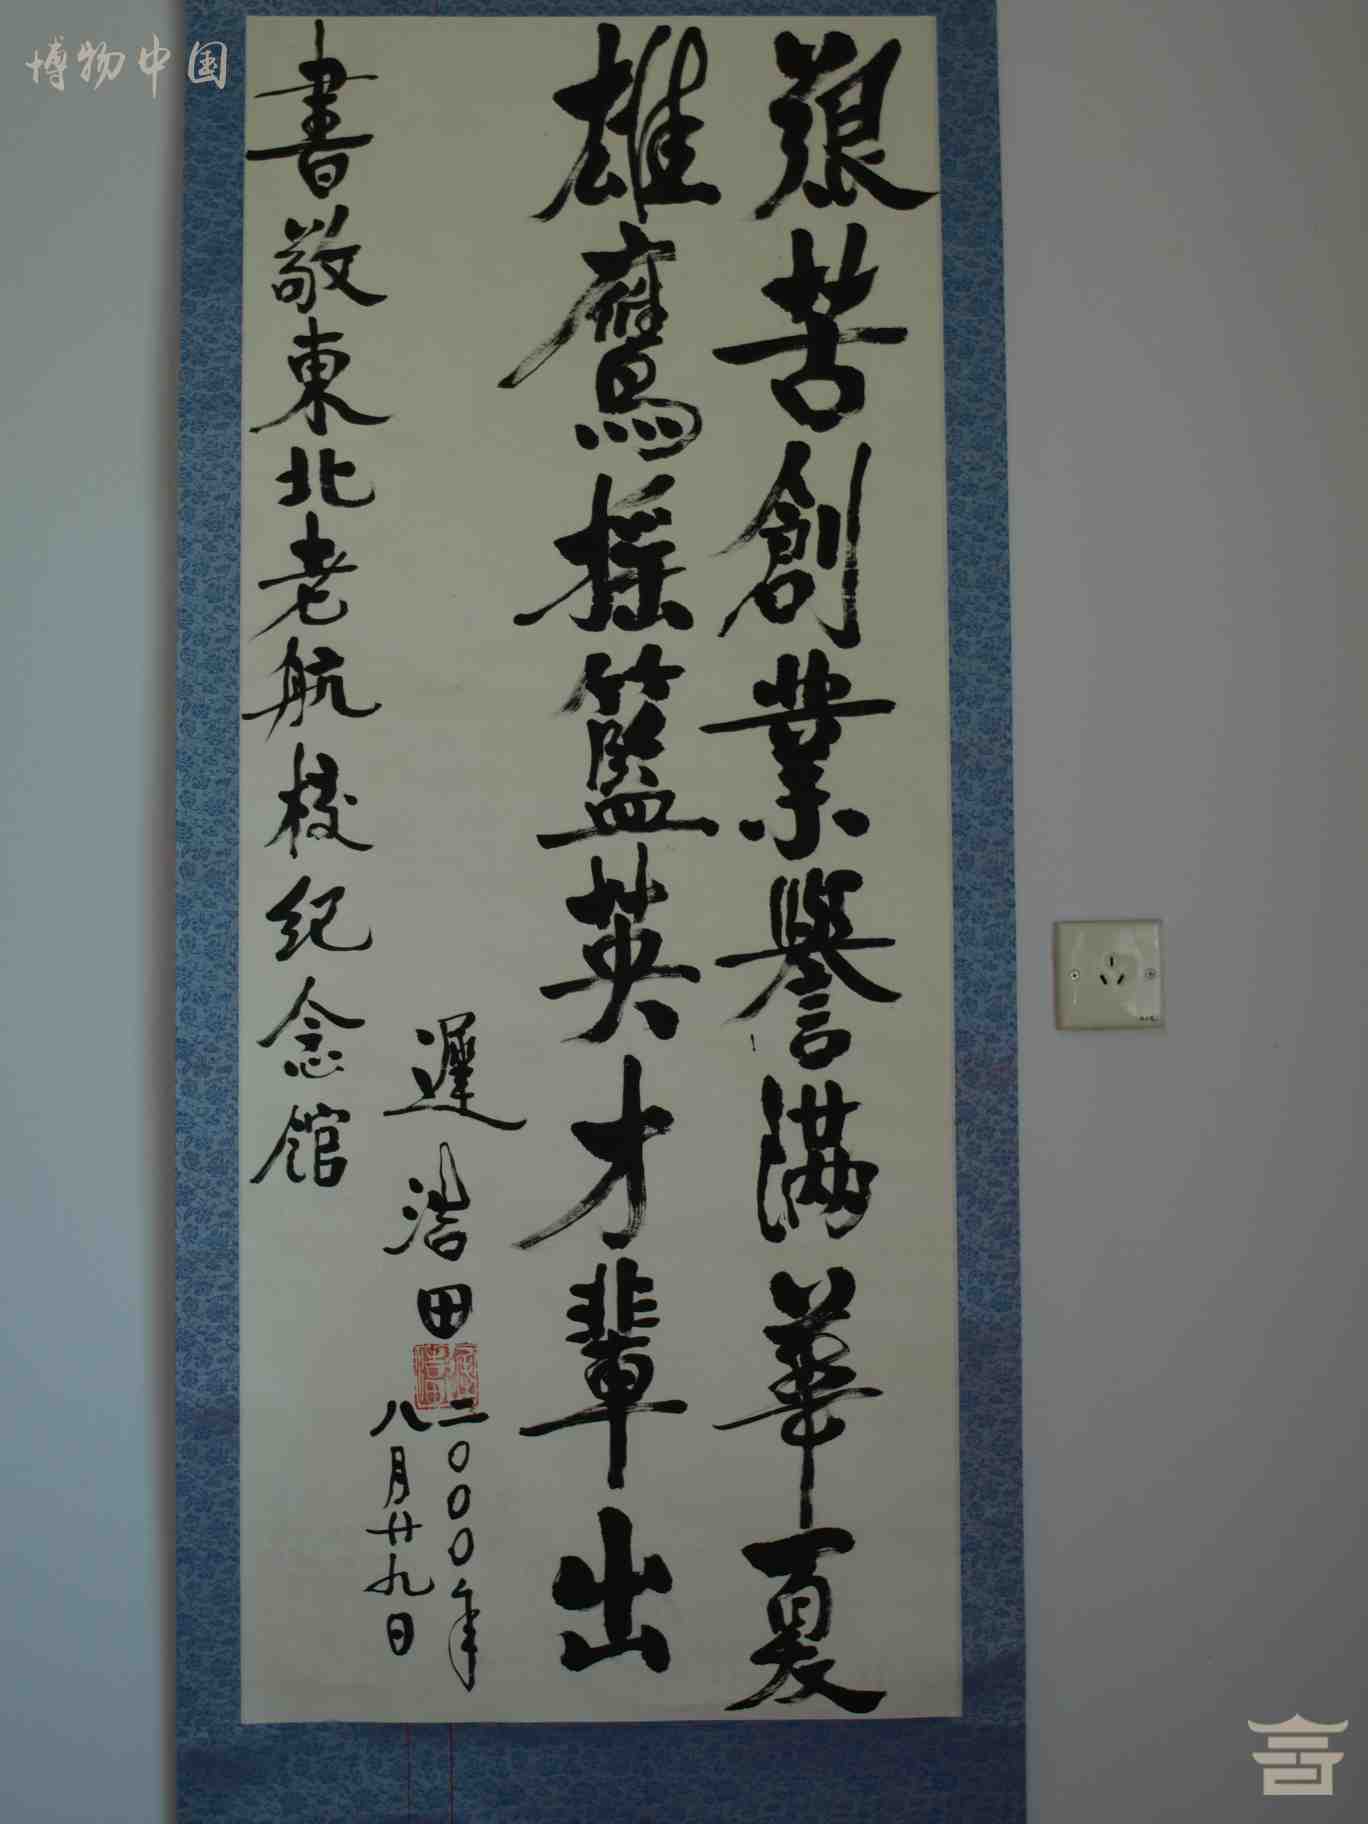 艱苦創業譽滿華夏
雄鷹摇籃英才輩出
遲浩田
二〇〇〇年
八月廿九日
書敬東北老航校纪念馆
博物中国